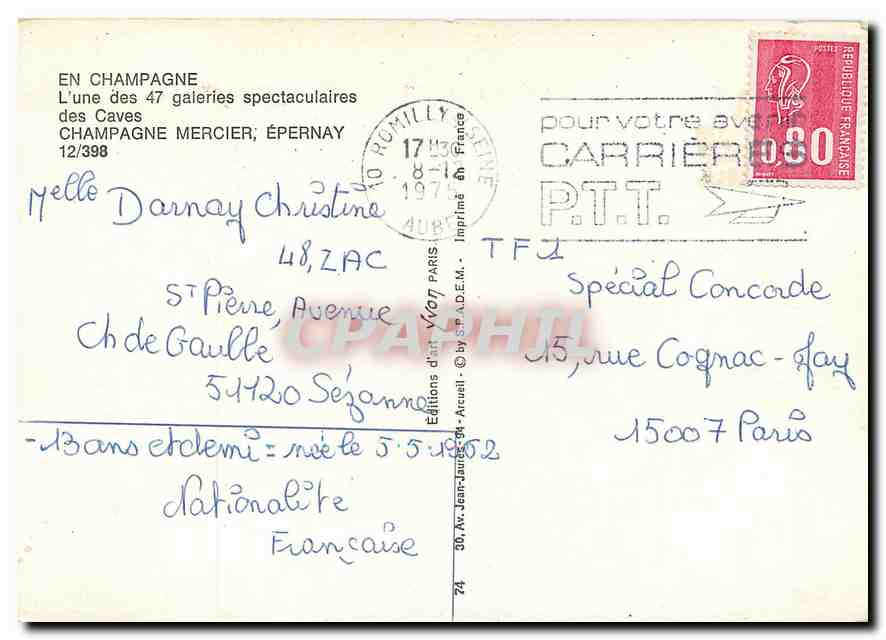 EN CHAMPAGNE
L'une des 47 galeries spectaculaires
des Caves
CHAMPAGNE MERCIER, ÉPERNAY
12/398
Melle Darnay Christine
48, ZAC
St Pierre, Avenue
Ch de Gaulle
51120 Sézanne
-13 ans et demi = née le 5.5.1962
Nationalité
Française
10 ROMILLY S SEINE
17 H30
8-1
1975
AUBE
pour votre avenir
CARRIÈRES
P.T.T.
POSTES
RÉPUBLIQUE FRANÇAISE
0,80
TF1
Spécial Concorde
15, rue Cognac-Jay
15007 Paris
74 30, Av. Jean-Jaurès-94-Arcueil - © by S.P.A.D.E.M. - Imprimé en France
Editions d'art Yvon PARIS
CPAPHIL